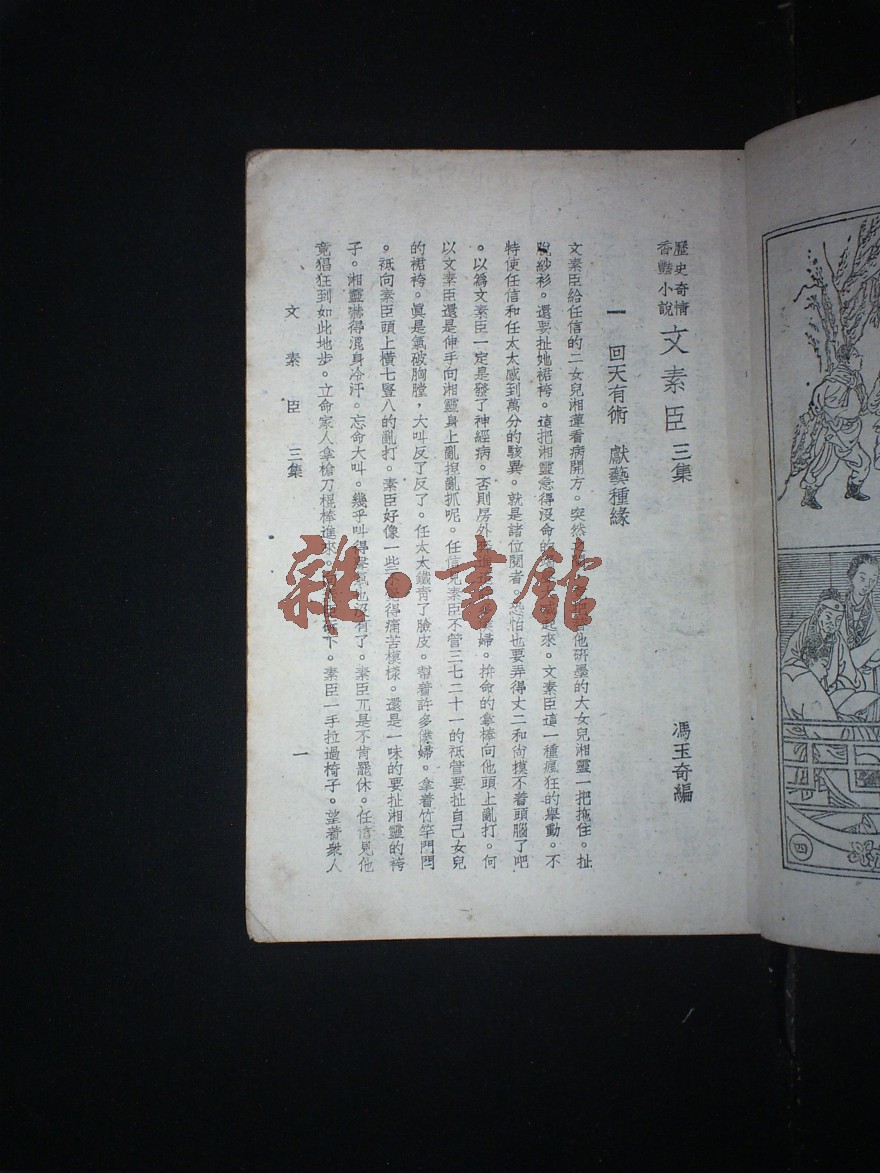 歷史奇情
香豔小說
文素臣 三集
馮玉奇編
一 回天有術 獻藝種緣
文素臣給任信的二女兒湘蓮看病開方。突然 他研墨的大女兒湘靈一把拖住。扯
脫紗衫。還要扯她裙袴。這把湘靈急得沒命的 起來。文素臣這一種瘋狂的舉動。不
特使任信和任太太感到萬分的駭異。就是諸位閱者。恐怕也要弄得丈二和尚摸不着頭腦了吧
。以爲文素臣一定是發了神經病。否則房外 婦。拚命的拿棒向他頭上亂打。何
以文素臣還是伸手向湘靈身上亂抱亂抓呢。任信見素臣不管三七二十一的祇管要扯自己女兒
的裙袴。眞是氣破胸膛，大叫反了反了。任太太鐵靑了臉皮。幫着許多僕婦。拿着竹竿門閂
。祇向素臣頭上橫七豎八的亂打。素臣好像一些 得痛苦模樣。還是一味的要扯湘靈的袴
子。湘靈嚇得混身冷汗。忘命大叫。幾乎叫得 也沒有了。素臣兀是不肯罷休。任信見他
竟猖狂到如此地步。立命家人拿槍刀棍棒進來。 下。素臣一手拉過椅子。望着衆人
文素臣 三集
一
四
雜·書館